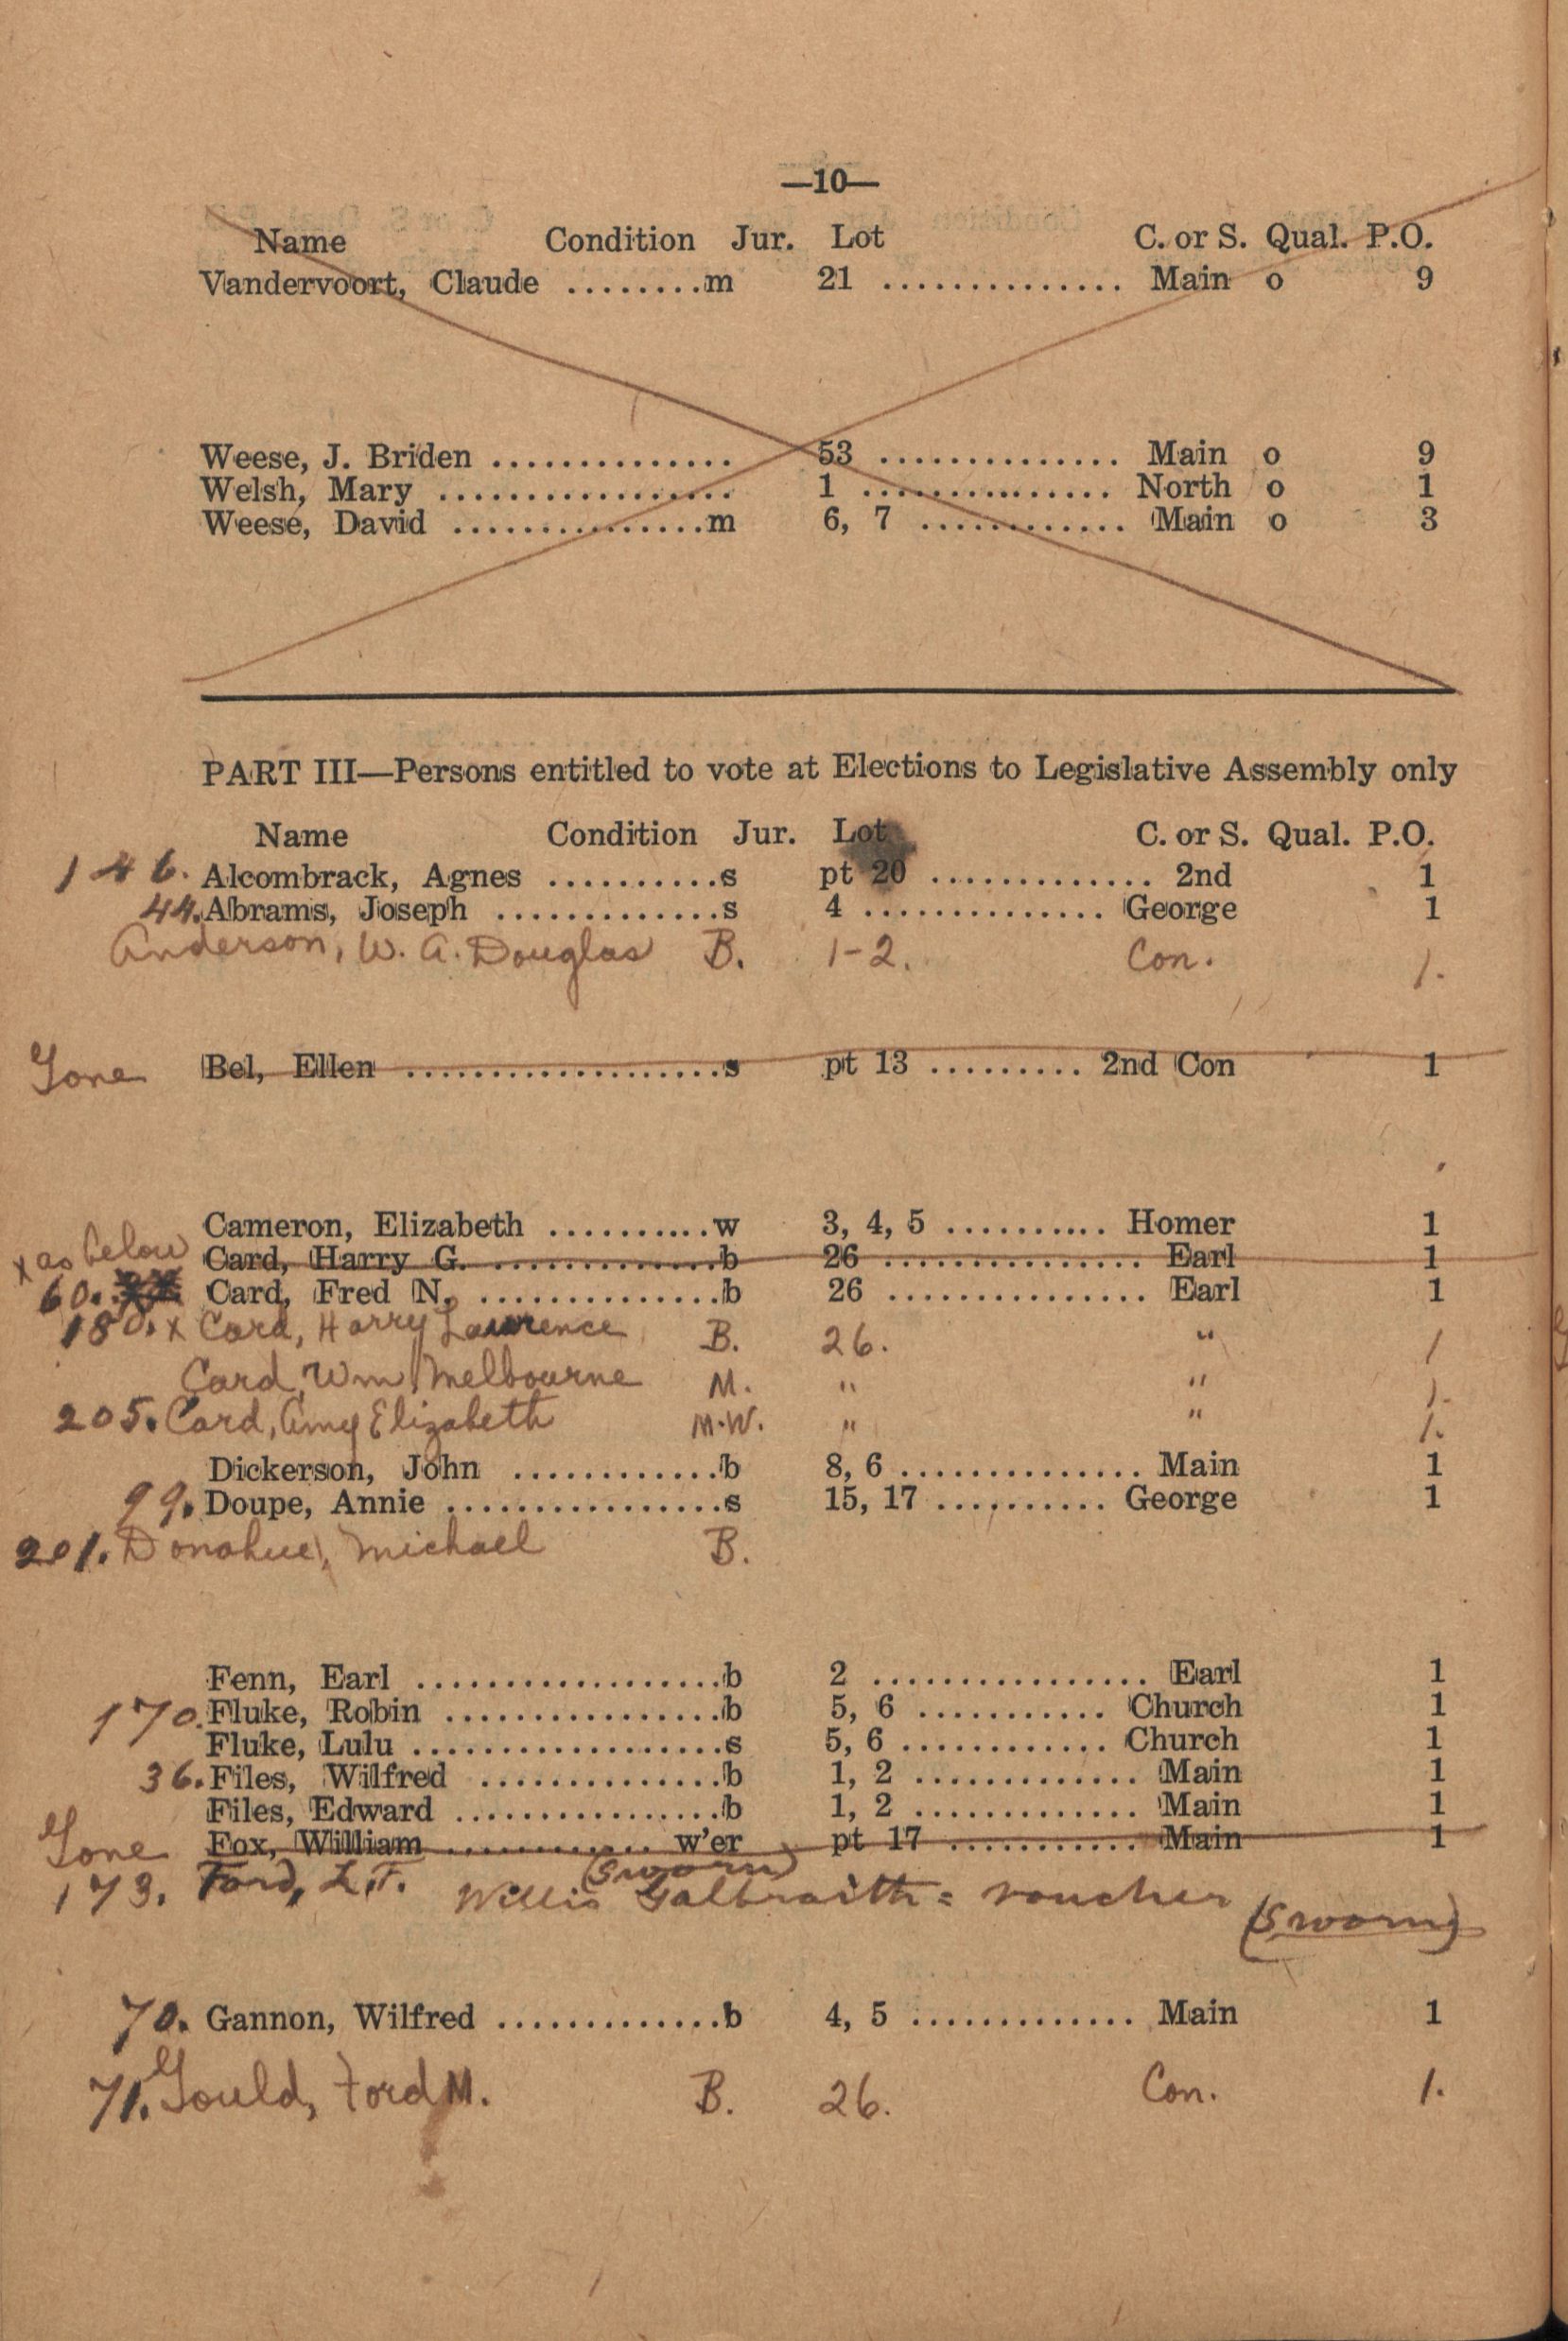 —10—
Name Condition Jur. Lot C. or S. Qual. P.O.
Vandervoort, Claude ........m 21 .............. Main o 9
Weese, J. Briden .............. 53 .............. Main o 9
Welsh, Mary ................. 1 ............... North o 1
Weese, David ...............m 6, 7 ............ Main o 3
PART III—Persons entitled to vote at Elections to Legislative Assembly only
Name Condition Jur. Lot C. or S. Qual. P.O.
146. Alcombrack, Agnes ..........s pt 20 ............. 2nd 1
44. Abrams, Joseph .............s 4 ............... George 1
Anderson, W. A. Douglas B. 1-2. Con. 1.
Gone Bel, Ellen ...................s pt 13 ......... 2nd Con 1
Cameron, Elizabeth ..........w 3, 4, 5 .......... Homer 1
x as below Card, Harry G. ..............b 26 ............... Earl 1
60. Card, Fred N. ...............b 26 ............... Earl 1
180. x Card, Harry Lawrence B. 26. " 1
Card, Wm Melbourne M. " " 1.
205. Card, Amy Elizabeth M.W. " " 1.
Dickerson, John ............b 8, 6 .............. Main 1
99. Doupe, Annie ................s 15, 17 .......... George 1
201. Donahue, Michael B.
Fenn, Earl ..................b 2 ................ Earl 1
170. Fluke, Robin ................b 5, 6 ........... Church 1
Fluke, Lulu ...................s 5, 6 ............ Church 1
36. Files, Wilfred ..............b 1, 2 ............. Main 1
Files, Edward ................b 1, 2 ............. Main 1
Gone Fox, William ............ w'er pt 17 ........... Main 1
(sworn)
173. Ford, L.T. Willis Galbraith = voucher (sworn)
70. Gannon, Wilfred .............b 4, 5 ............. Main 1
71. Gould, Ford M. B. 26. Con. 1.